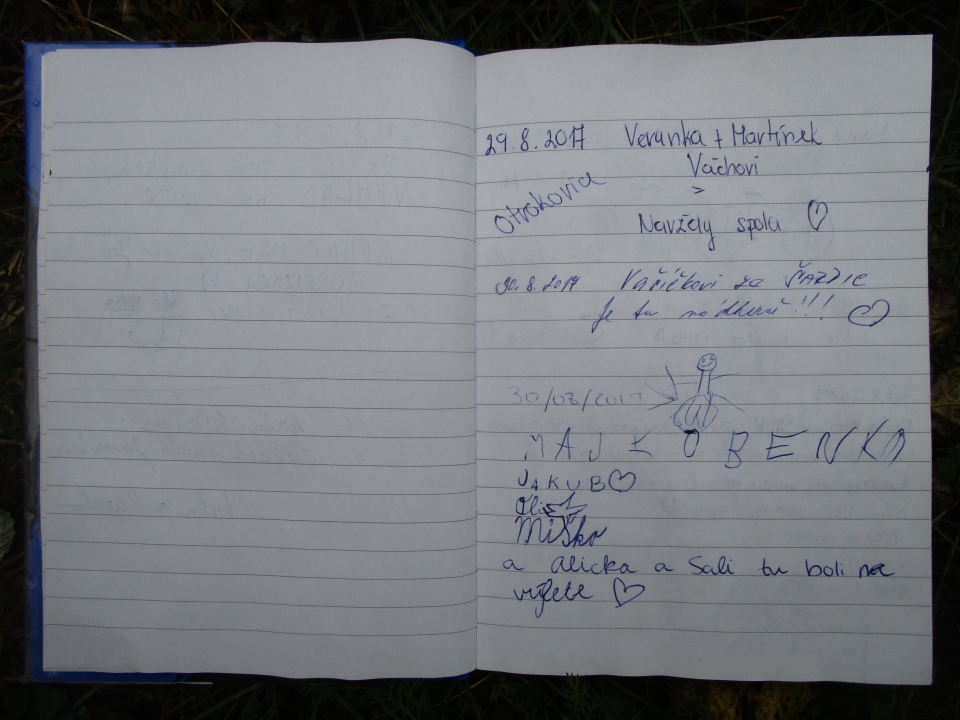 29.8.2017 Verunka + Martínek
Váchovi
Otrokovice
Navždy spolu
30.8.2017 Vaříčkovi ze ŠARDIC
Je tu nádherně!!!
30/08/2017
MAJKO BENKO
JAKUB
Miško
a Alicka a Sali tu boli na
výlete